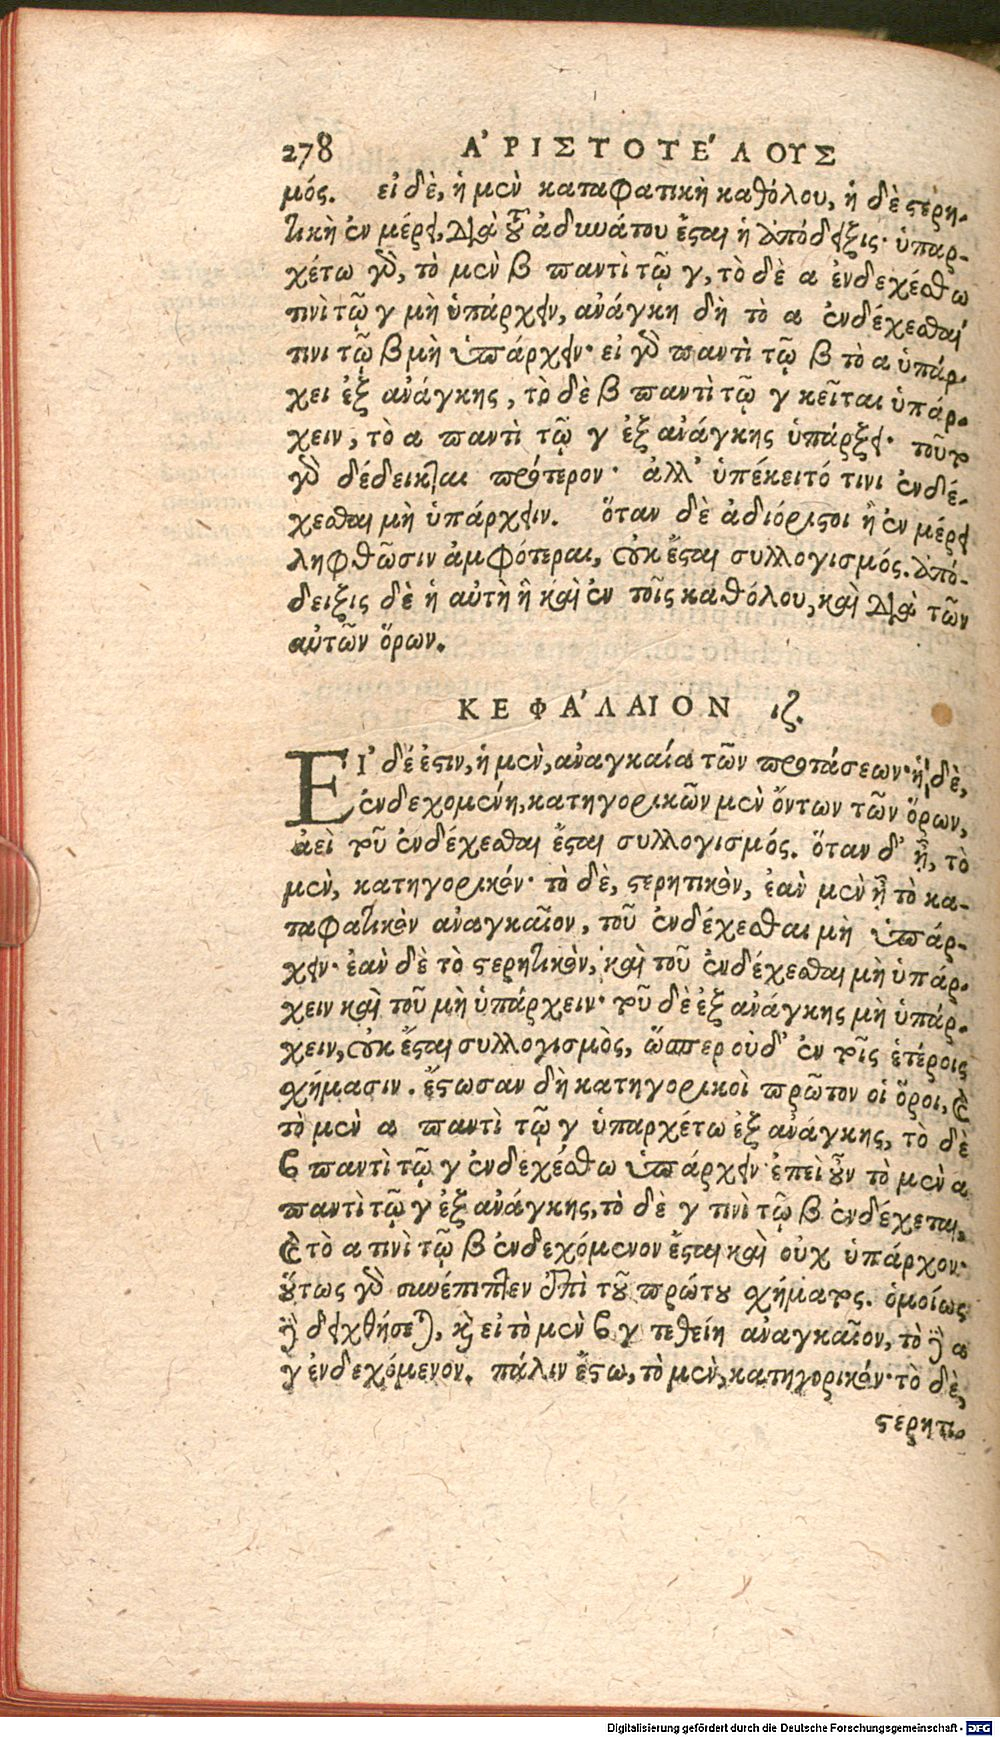 278 Α᾿ΡΙΣΤΟΤΕ´ΛΟΥΣ
μός. εἰ δὲ, ἡ μὲν καταφατικὴ καθόλου, ἡ δὲ στερη-
τικὴ ἐν μέρει, διὰ τοῦ ἀδυνάτου ἔσται ἡ ἀπόδειξις· ὑπαρ-
χέτω γὰρ, τὸ μὲν β παντὶ τῷ γ, τὸ δὲ α ἐνδεχέσθω
τινὶ τῷ γ μὴ ὑπάρχειν, ἀνάγκη δὴ τὸ α ἐνδέχεσθαί
τινι τῷ β μὴ ὑπάρχειν· εἰ γὰρ παντὶ τῷ β τὸ α ὑπάρ-
χει ἐξ ἀνάγκης, τὸ δὲ β παντὶ τῷ γ κεῖται ὑπάρ-
χειν, τὸ α παντὶ τῷ γ ἐξ ἀνάγκης ὑπάρξει· τοῦτο
γὰρ δέδεικται πρότερον· ἀλλ᾿ ὑπέκειτό τινι ἐνδέ-
χεσθαι μὴ ὑπάρχειν. ὅταν δὲ ἀδιόριστοι ἢ ἐν μέρει
ληφθῶσιν ἀμφότεραι, οὐκ ἔσται συλλογισμός. ἀπό-
δειξις δὲ ἡ αὐτὴ ἣ καὶ ἐν τοῖς καθόλου, καὶ διὰ τῶν
αὐτῶν ὅρων.
ΚΕΦΑ´ΛΑΙΟΝ ιζ.
ΕΙ᾿ δέ ἐστιν, ἡ μὲν, ἀναγκαία τῶν προτάσεων· ἡ δὲ,
ἐνδεχομένη, κατηγορικῶν μὲν ὄντων τῶν ὅρων,
ἀεὶ τοῦ ἐνδέχεσθαι ἔσται συλλογισμός. ὅταν δ᾿ ᾖ, τὸ
μὲν, κατηγορικόν· τὸ δὲ, στερητικὸν, ἐὰν μὲν ᾖ τὸ κα-
ταφατικὸν ἀναγκαῖον, τοῦ ἐνδέχεσθαι μὴ ὑπάρ-
χειν· ἐὰν δὲ τὸ στερητικὸν, καὶ τοῦ ἐνδέχεσθαι μὴ ὑπάρ-
χειν καὶ τοῦ μὴ ὑπάρχειν· τοῦ δὲ ἐξ ἀνάγκης μὴ ὑπάρ-
χειν, οὐκ ἔσται συλλογισμὸς, ὥσπερ οὐδ᾿ ἐν τοῖς ἑτέροις
σχήμασιν. ἔστωσαν δὴ κατηγορικοὶ πρῶτον οἱ ὅροι, καὶ
τὸ μὲν α παντὶ τῷ γ ὑπαρχέτω ἐξ ἀνάγκης, τὸ δὲ
ϐ παντὶ τῷ γ ἐνδεχέσθω ὑπάρχειν· ἐπεὶ οὖν τὸ μὲν α
παντὶ τῷ γ ἐξ ἀνάγκης, τὸ δὲ γ τινὶ τῷ β ἐνδέχεται,
καὶ τὸ α τινὶ τῷ β ἐνδεχόμενον ἔσται καὶ οὐχ ὑπάρχον·
οὕτως γὰρ συνέπιπτεν ἐπὶ τοῦ πρώτου σχήματος. ὁμοίως
δὲ δειχθήσεται, καὶ εἰ τὸ μὲν ϐ γ τεθείη ἀναγκαῖον, τὸ δὲ α
γ ἐνδεχόμενον. πάλιν ἔστω, τὸ μὲν, κατηγορικόν· τὸ δὲ,
στερητι-
Digitalisierung gefördert durch die Deutsche Forschungsgemeinschaft - DFG